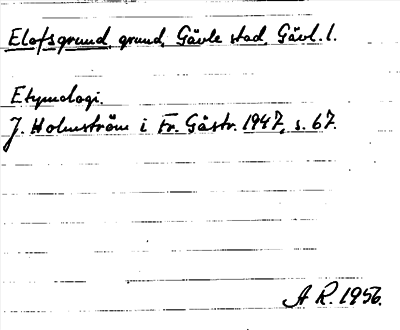 Elofsgrund, grund, Gävle stad, Gävl. l.
Etymologi.
J. Holmström i Fr. Gästr. 1947, s. 67.
A R. 1956.